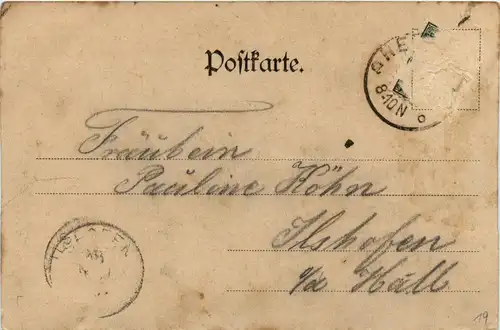 Postkarte.
8-10N
Fräulein
Pauline Höhn
Ilshofen
Hall
ILSHOFEN
19